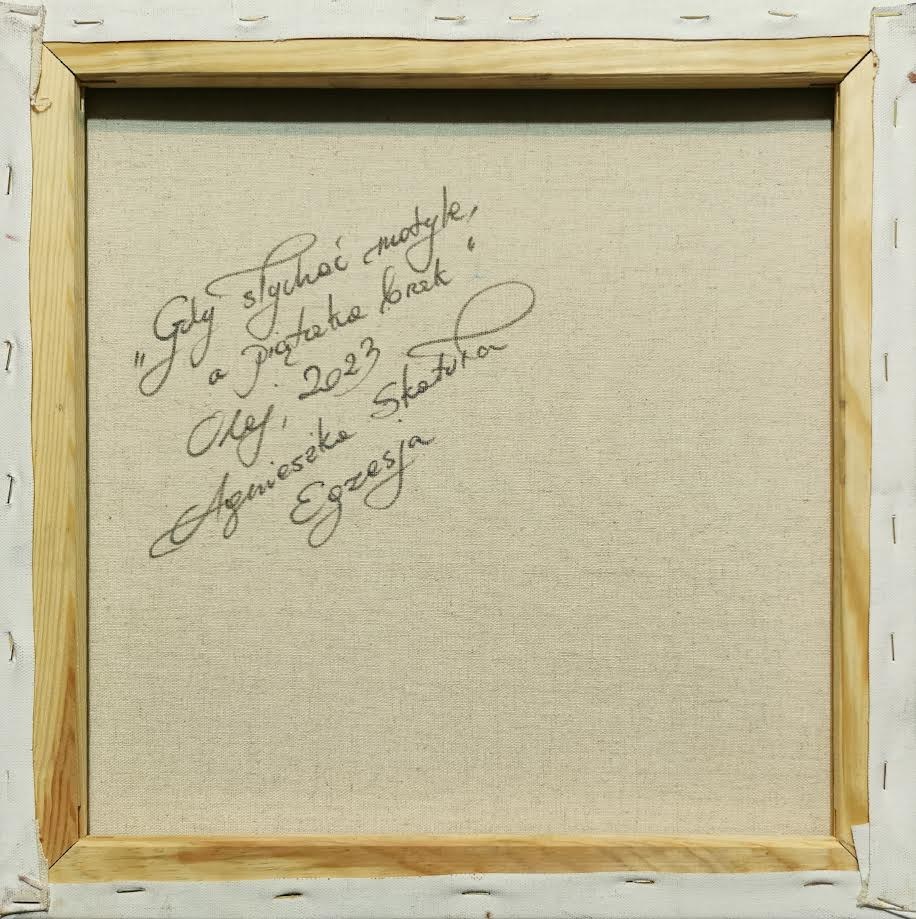 „Gdy słychać motyle,
a piątka brak"
Olej, 2023
Agnieszka Skatuła
Egzesja